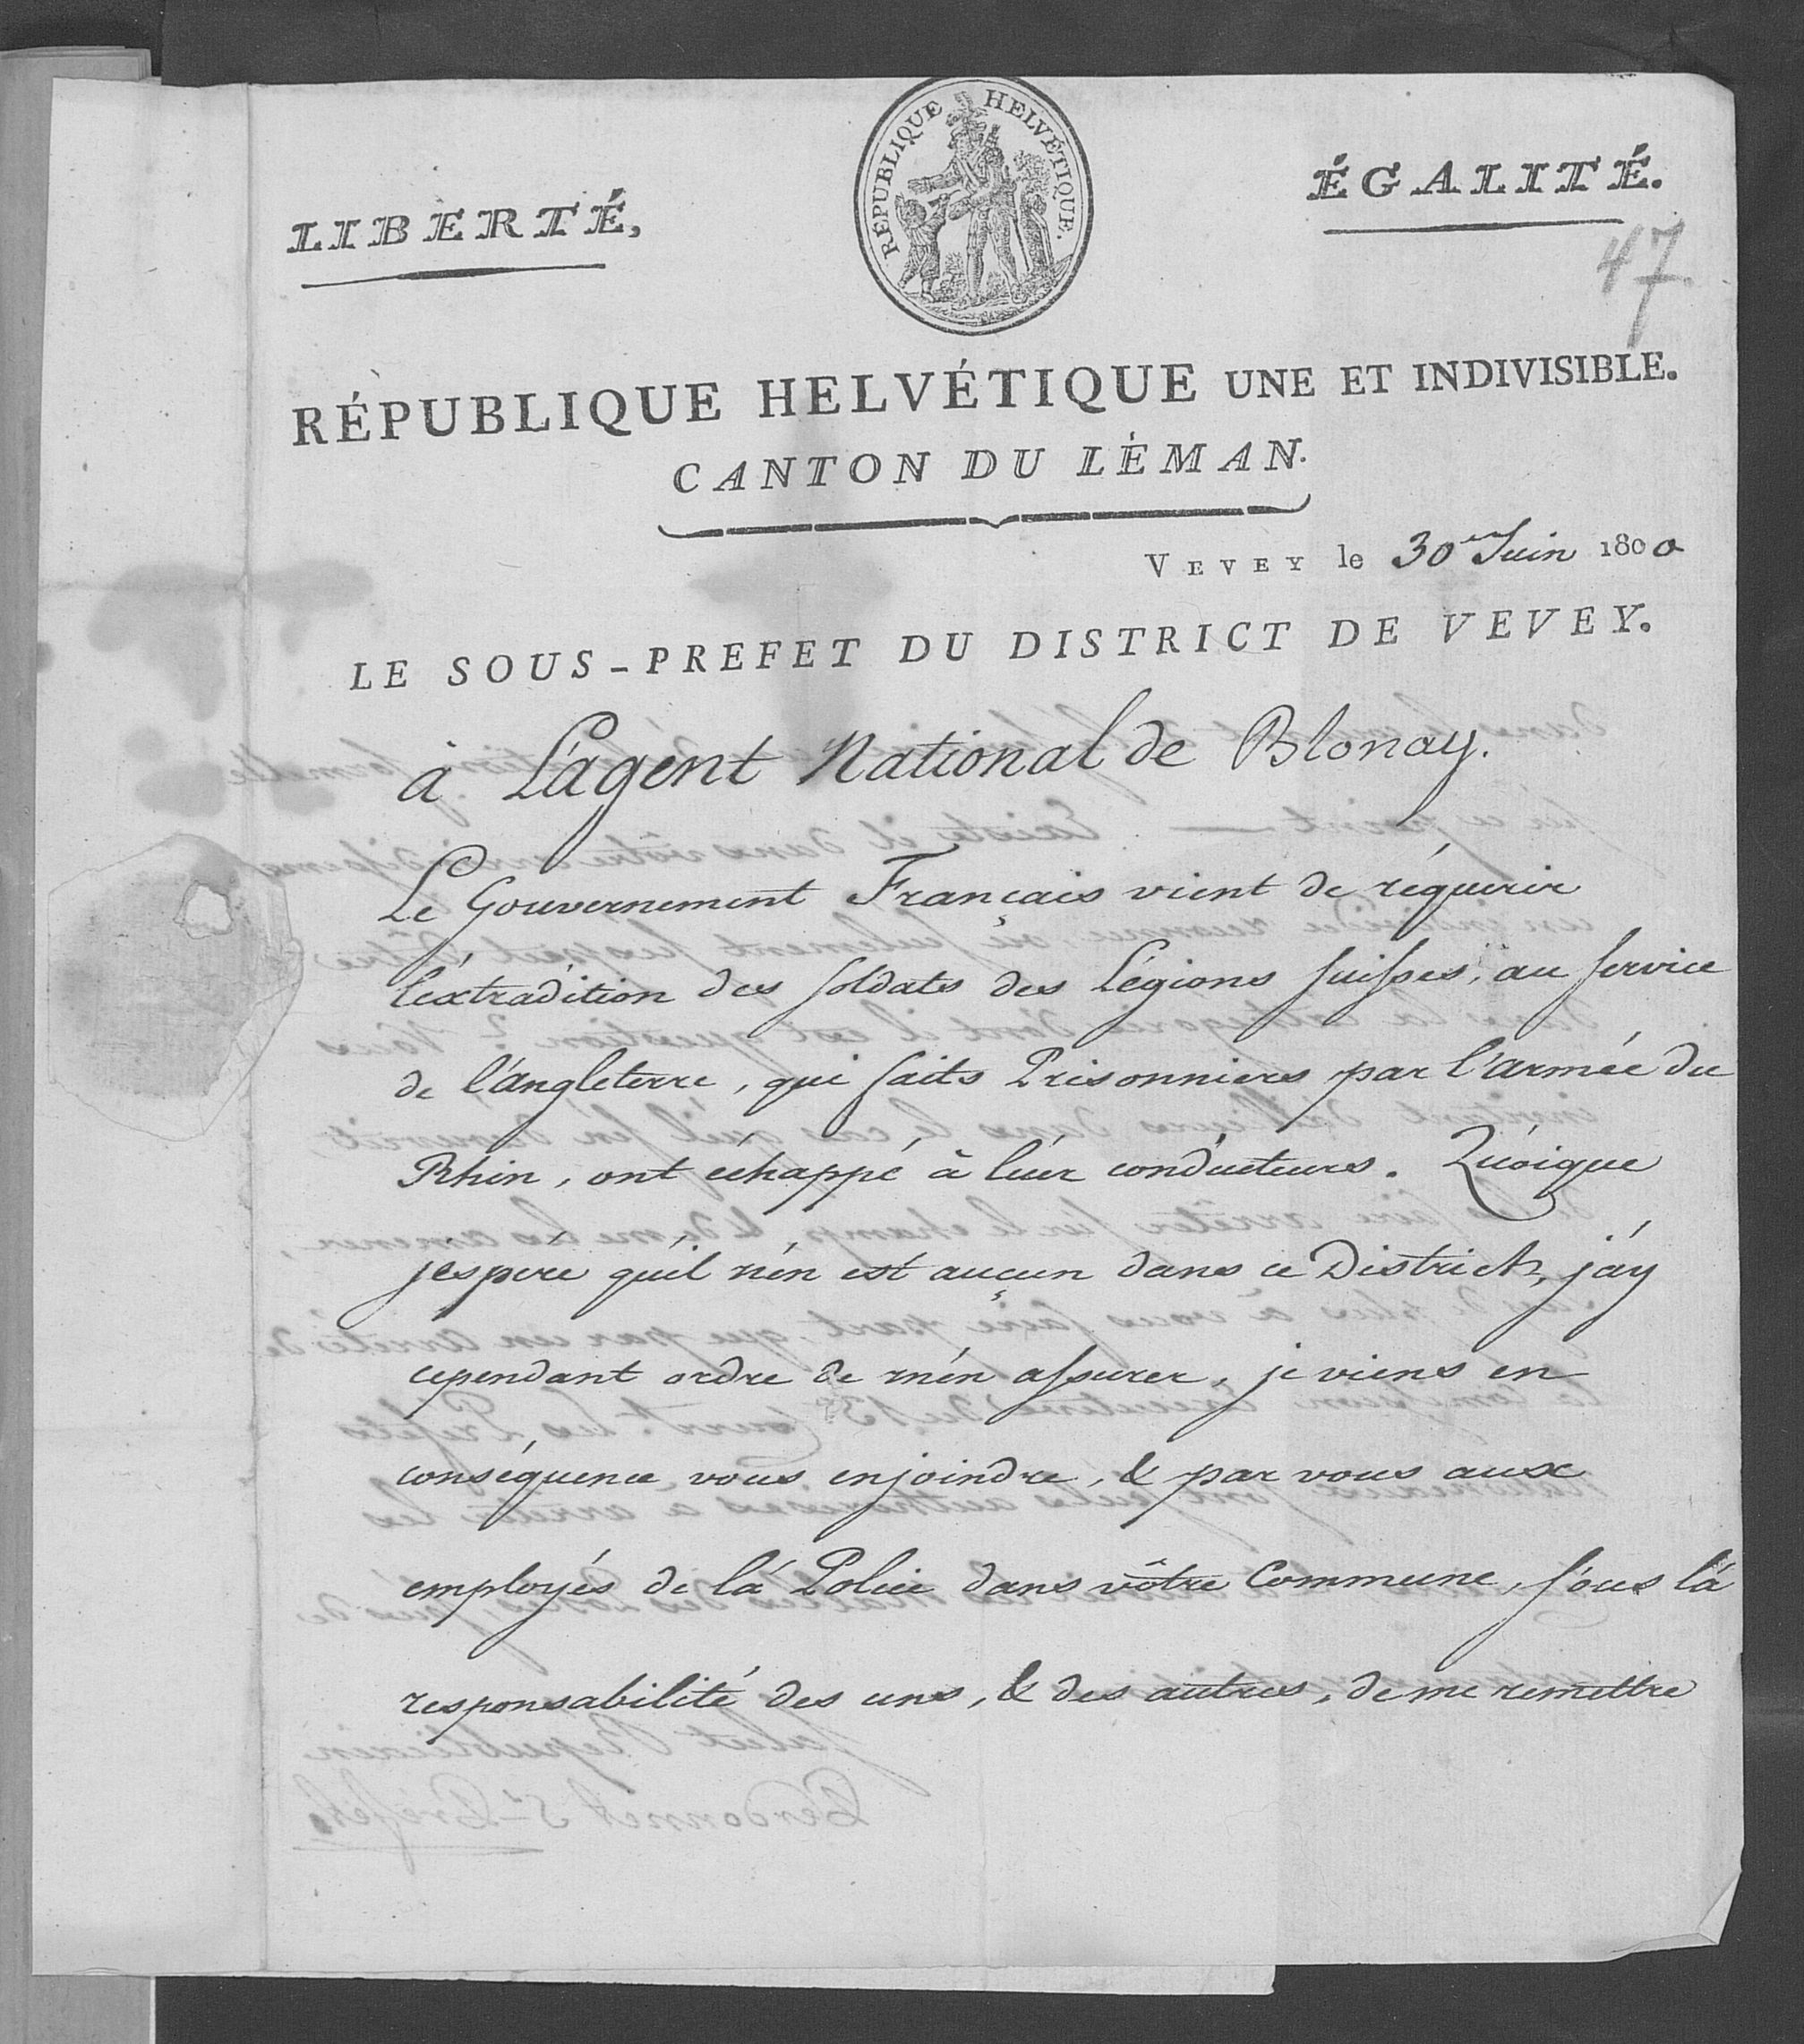 LIBERTÉ,
RÉPUBLIQUE HELVÉTIQUE.
ÉGALITÉ.
47
RÉPUBLIQUE HELVÉTIQUE UNE ET INDIVISIBLE.
CANTON DU LÉMAN.
VEVEY le 30en Juin 1800
LE SOUS-PREFET DU DISTRICT DE VEVEY.
à L'agent National de Blonay.
Le Gouvernement Français vient de réquerir
l'éxtradition des soldats des Légions suisses, au service
de l'angleterre, qui faits Prisonniers par l'armée du
Rhin, ont échappé à léur conducteurs. Quóique
jéspére qu'il n'én est aucun dans ce District, j'áy
cependant ordre de m'én assurer, je viens en
conséquence vous enjoindre, & par vous aux
employés de lá Police dans vôtre Commune, sous lá
responsabilité des uns, & des autres, de me remettre